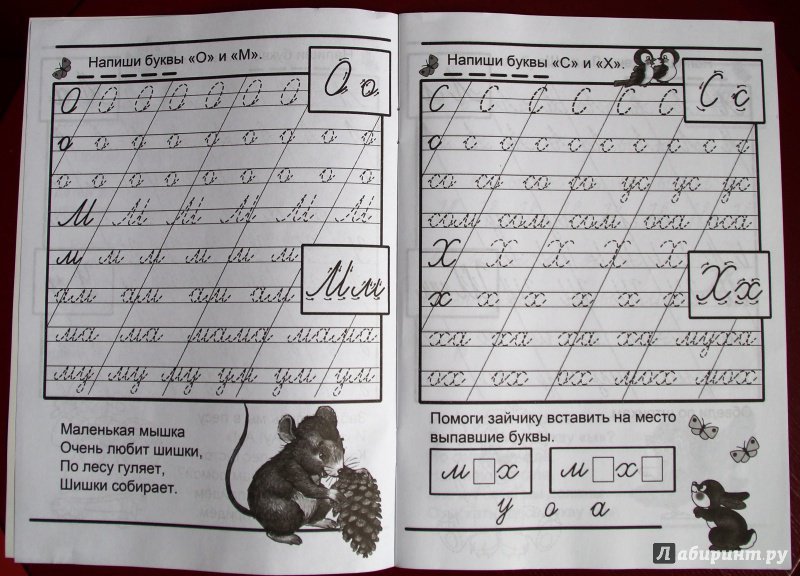 Напиши буквы «О» и «М».
О О О О О О О
О о
о о о о о о о о о
о о о о о о о о о
М М М М М М
м м м м м м
М м
ам ам ам ам
ма ма мама мама
му му му ум ум ум
Маленькая мышка
Очень любит шишки,
По лесу гуляет,
Шишки собирает.
Напиши буквы «С» и «Х».
С С С С С С
С с
с с с с с с с с с
со со со со ус ус ус
сом сом сом оса оса
Х Х Х Х Х
Х х
х х х х х х
ха ха ха ха муха
ох ох ох мох мох
Помоги зайчику вставить на место
выпавшие буквы.
м□х м□х□
у о а
Лабиринт.ру